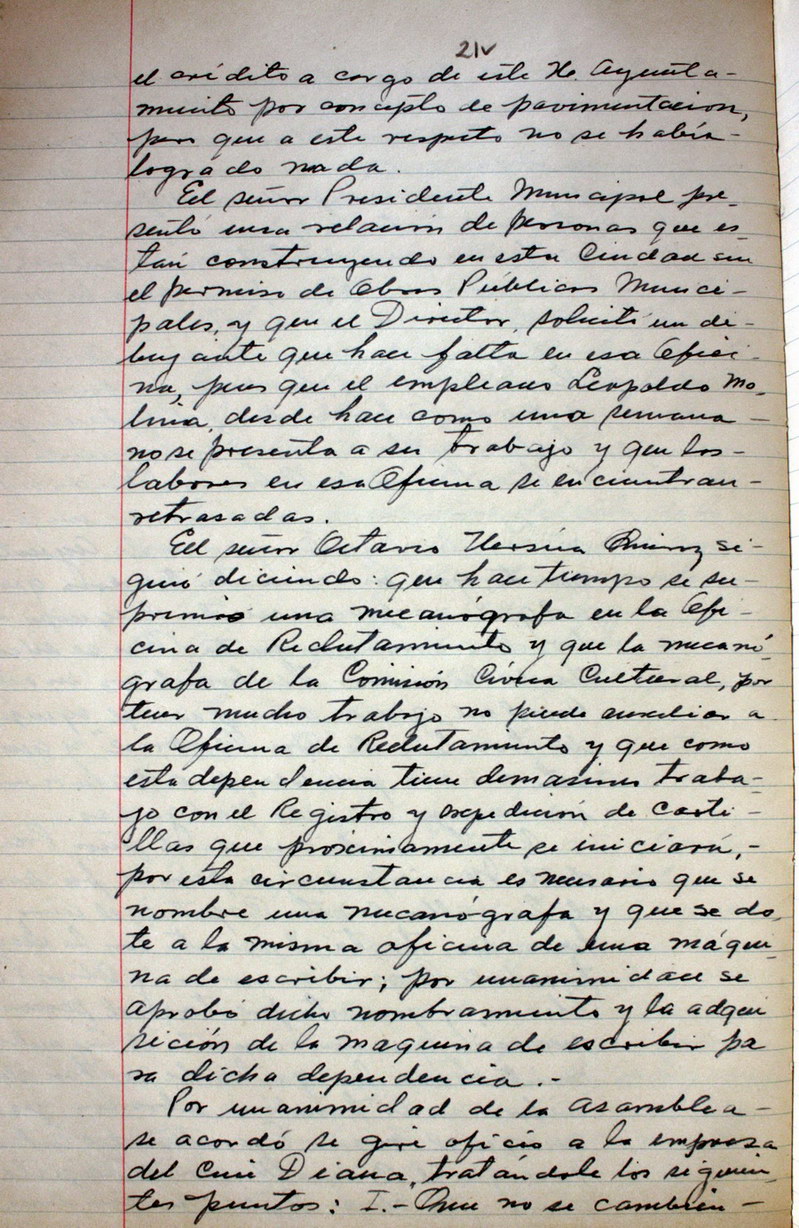 21v
el crédito a cargo de este H. Ayunta-
miento por concepto de pavimentacion,
pero que a este respeto no se había-
logrado nada.
El señor Presidente Municipal pre-
sentó una relación de personas que es-
tan construyendo en esta Ciudad sin
el permiso de Obras Públicas Munici-
pales, y que el Director, solicitó un di-
bujante que hace falta en esa Ofici-
na, pues que el empleado Leopoldo Mo-
lina, desde hace como una semana-
no se presenta a su trabajo y que las-
labores en esa Oficina se encuentran-
retrasadas.
El señor Octavio si-
guió diciendo: que hace tiempo se su-
primió una mecanógrafa en la Ofi-
cina de Reclutamiento y que la mecanó-
grafa de la Comisión Cívica Cultural, por
tener mucho trabajo no puede auxiliar a
la Oficina de Reclutamiento y que como
esta dependencia tiene demasiado traba-
jo con el Registro y expedición de Carti-
llas que próximamente se iniciará,-
por esta circunstancia es necesario que se
nombre una mecanógrafa y que se do-
te a la misma oficina de una máqui-
na de escribir; por unanimidad se
aprobó dicho nombramiento y la adqui
sición de la maquina de escribir pa
ra dicha dependencia.-
Por unanimidad de la asamblea-
se acordó se gire oficio a la empresa
del Cine Diana, tratándole los siguien-
tes puntos: I.- Que no se cambien-